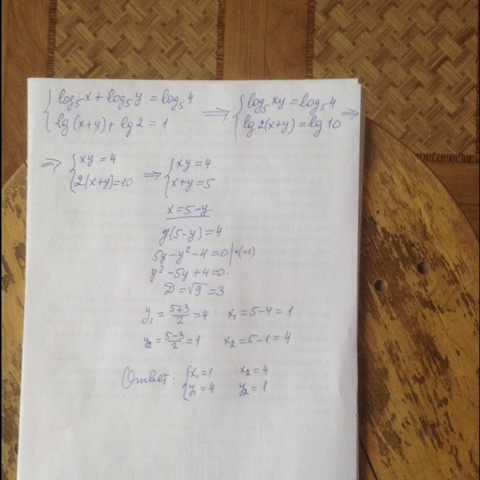 {log₅x + log₅y = log₅4
lg(x+y) + lg2 = 1 ⟹ {log₅xy = log₅4
lg2(x+y) = lg10 ⟹
⟹ {xy = 4
2(x+y) = 10 ⟹ {xy = 4
x+y = 5
x = 5-y
y(5-y) = 4
5y - y² - 4 = 0 | ·(-1)
y² - 5y + 4 = 0.
D = √9 = 3
y₁ = (5+3)/2 = 4 x₁ = 5-4 = 1
y₂ = (5-3)/2 = 1 x₂ = 5-1 = 4
Ответ: {x₁ = 1 x₂ = 4
y₁ = 4 y₂ = 1